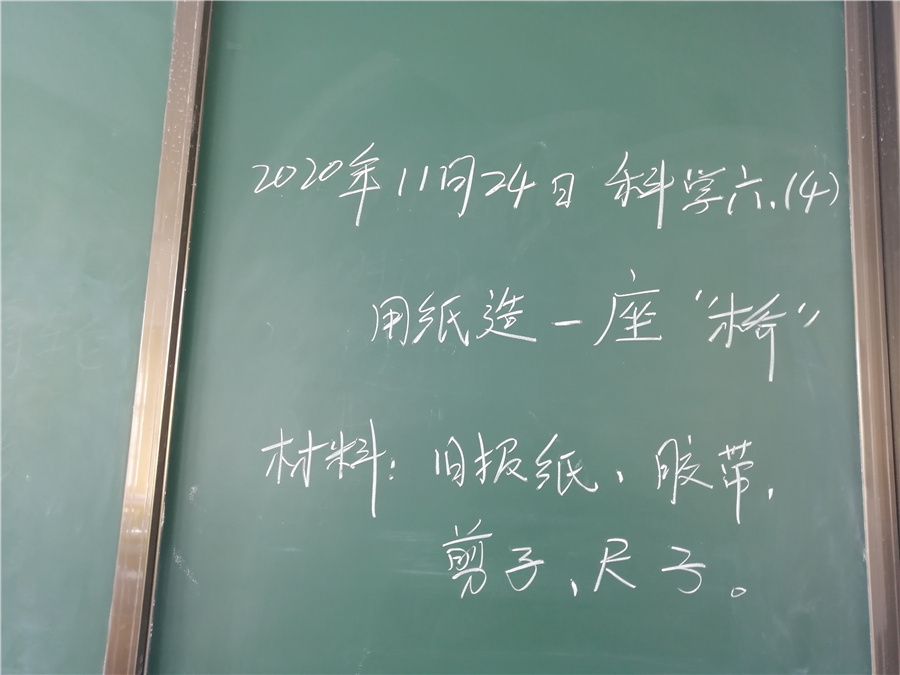 2020年11月24日 科学六.(4)
用纸造一座“桥”
材料：旧报纸、胶带、
剪子、尺子。